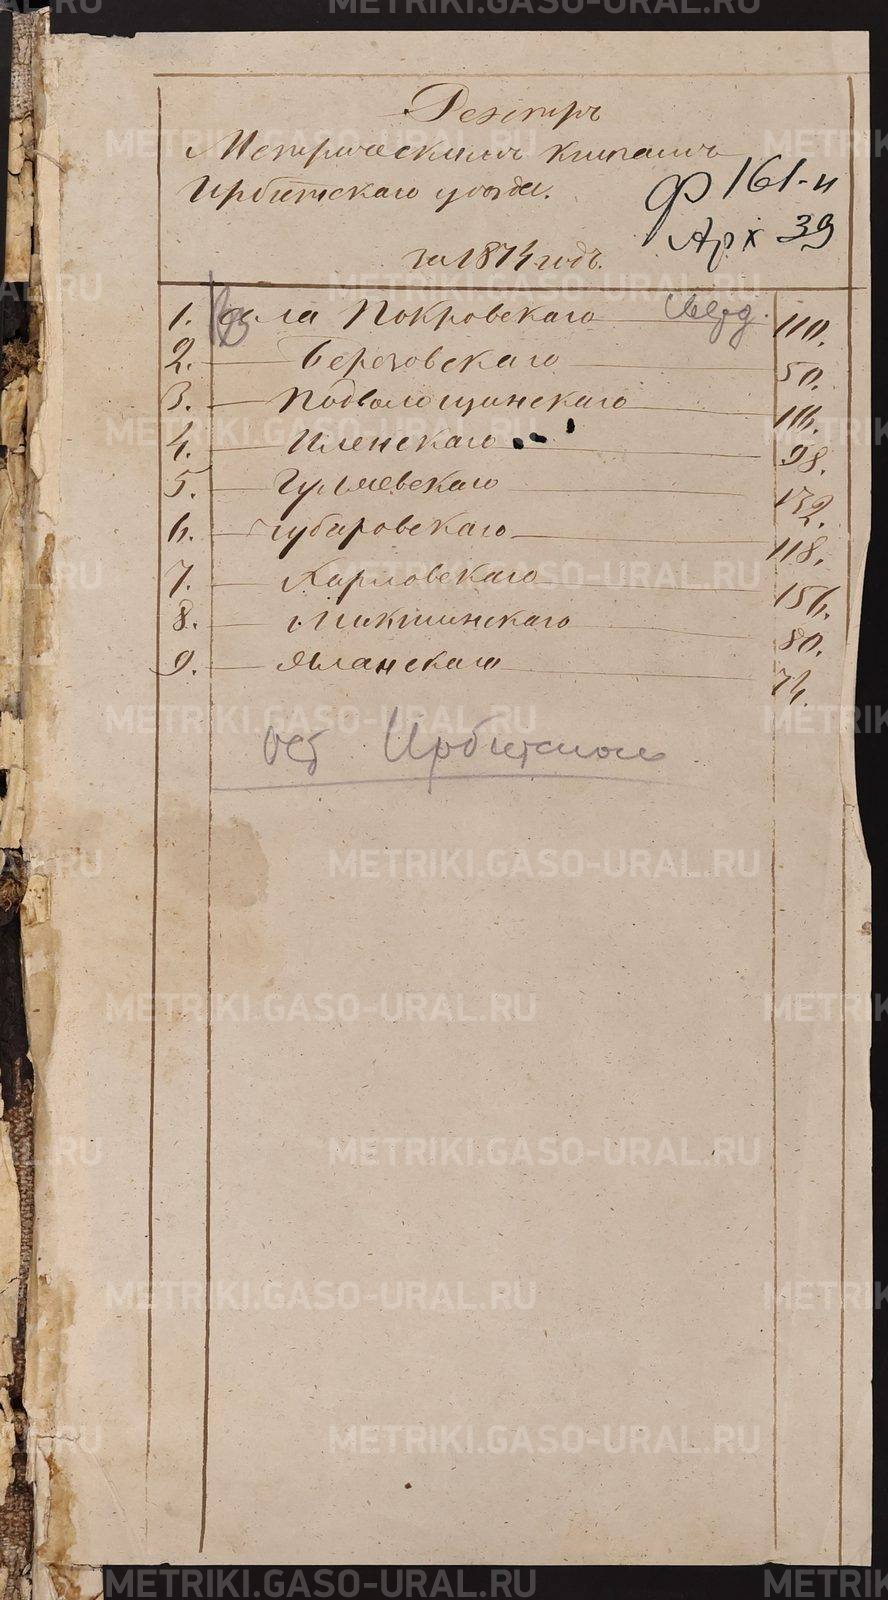 Реэстръ
Метрическимъ книгамъ
Ирбитскаго уѣзда.
за 1874 годъ.
Ф 161-и
Арх 39
1. села Покровскаго 110.
2. — Березовскаго 50.
3. — Подволошинскаго 116.
4. — Иленскаго 98.
5. — Гуляевскаго 132.
6. — Чубаровскаго 118.
7. — Харловскаго 156.
8. — Микшинскаго 80.
9. — Яланскаго 74.
Ирбитском
METRIKI.GASO-URAL.RU